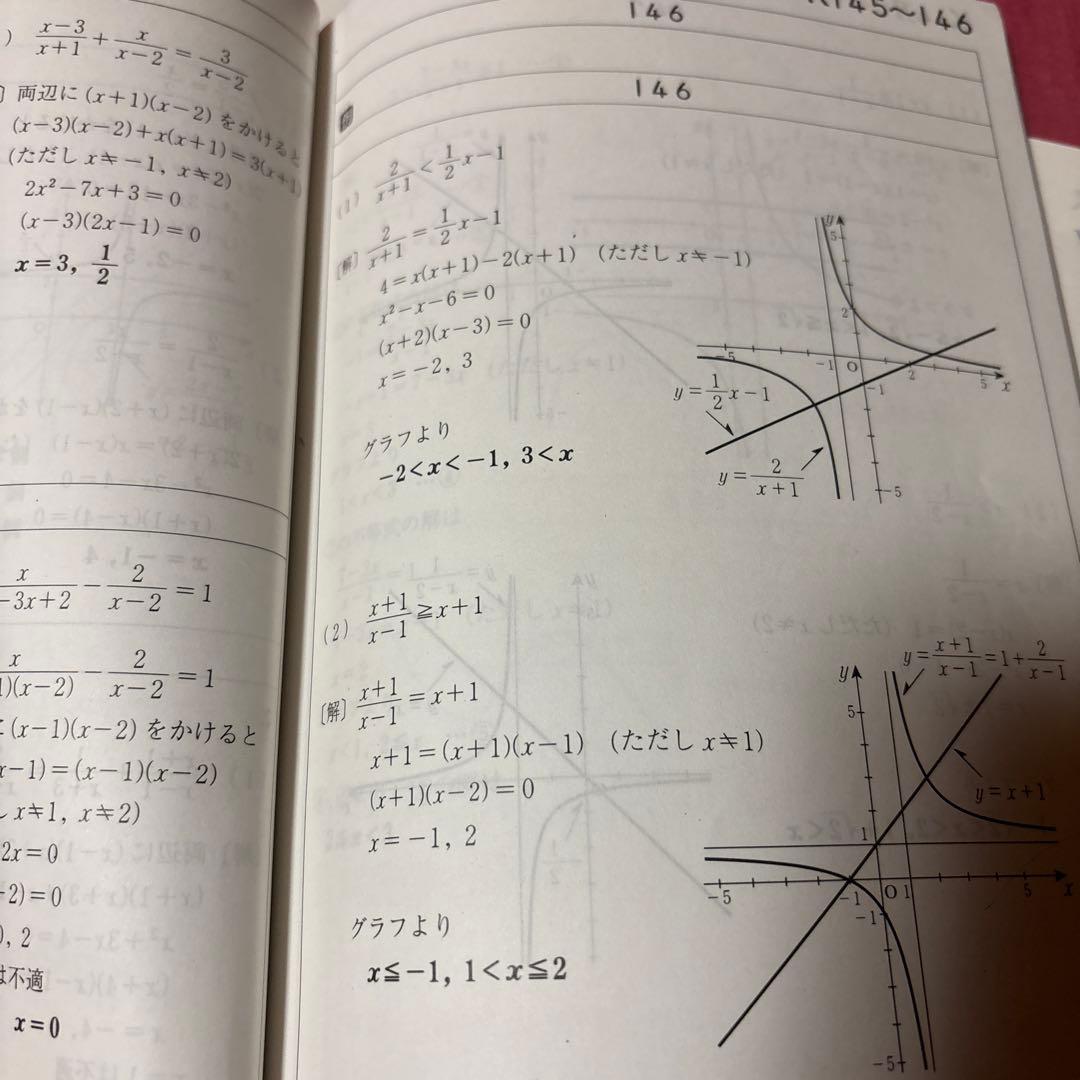 ) (x-3)/(x+1) + x/(x-2) = 3/(x-2)
] 両辺に(x+1)(x-2)をかけると
(x-3)(x-2)+x(x+1)=3(x+1)
(ただし x≠-1, x≠2)
2x²-7x+3=0
(x-3)(2x-1)=0
x=3, 1/2
x/(-3x+2) - 2/(x-2) = 1
x/(1)(x-2) - 2/(x-2) = 1
(x-1)(x-2)をかけると
x-1)=(x-1)(x-2)
x≠1, x≠2)
2x=0
-2)=0
), 2
は不適
x=0
146
K145〜146
146
(1) 2/(x+1) < 1/2 x-1
[解] 2/(x+1) = 1/2 x-1
4=x(x+1)-2(x+1) (ただし x≠-1)
x²-x-6=0
(x+2)(x-3)=0
x=-2, 3
グラフより
-2<x<-1, 3<x
y
5
2
-5
-1
O
-1
2
5
x
y=1/2 x-1
y=2/(x+1)
-5
(2) (x+1)/(x-1) ≧ x+1
[解] (x+1)/(x-1) = x+1
x+1=(x+1)(x-1) (ただし x≠1)
(x+1)(x-2)=0
x=-1, 2
グラフより
x≦-1, 1<x≦2
y=(x+1)/(x-1)=1+2/(x-1)
y
5
y=x+1
1
-5
-1
O
1
5
x
-1
-5